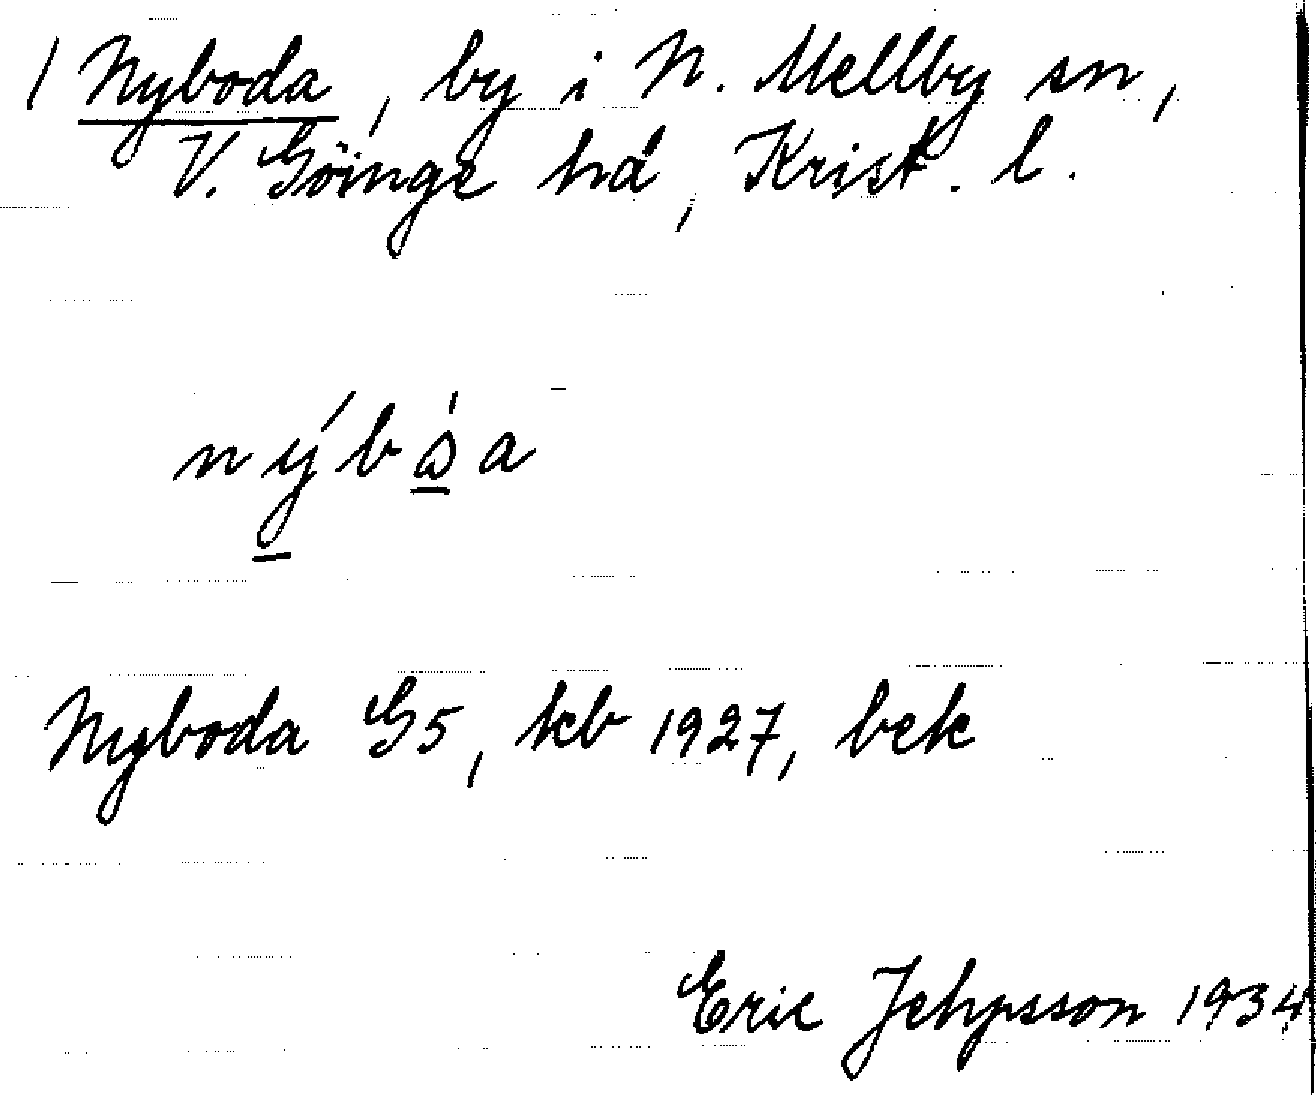 1 Nyboda, by i N. Mellby sn,
V. Göinge hd, Krist. l.
nýbóa
Nyboda G5, kb 1927, bek
Eric Jehpsson 1934